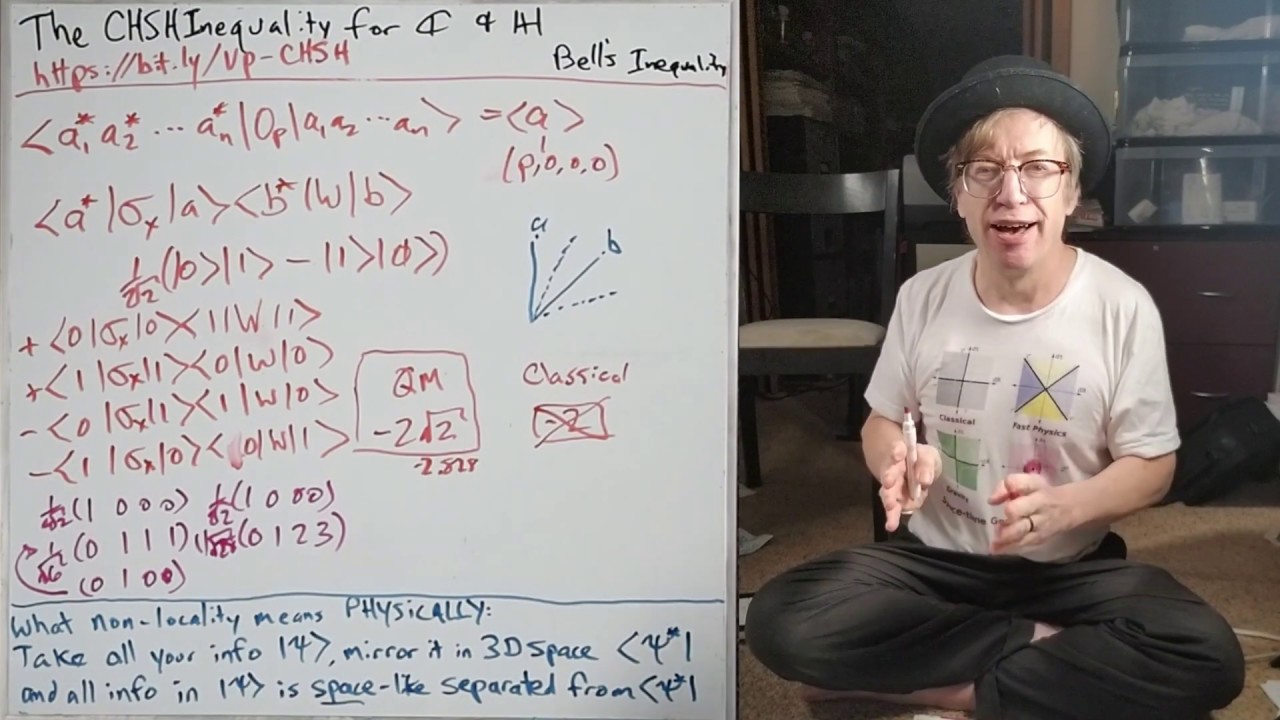 The CHSH Inequality for ℂ & ℍ
https://bit.ly/Vp-CHSH
Bell's Inequality
<a₁* a₂* ... aₙ* | Op | a₁ a₂ ... aₙ> = <a>
(p,0,0,0)
<a* | σₓ | a><b* | W | b>
1/√2 (|0>|1> - |1>|0>)
a
b
+ <0|σₓ|0><1|W|1>
+ <1|σₓ|1><0|W|0>
- <0|σₓ|1><1|W|0>
- <1|σₓ|0><0|W|1>
QM
-2√2
-2.828
Classical
-2
1/√2 (1 0 0 0) 1/√2 (1 0 0 0)
1/√6 (0 1 1 1) (0 1 2 3)
(0 1 0 0)
What non-locality means PHYSICALLY:
Take all your info |Ψ>, mirror it in 3D space <Ψ*|
and all info in |Ψ> is space-like separated from <Ψ*|
Classical
Fast Physics
Gravity